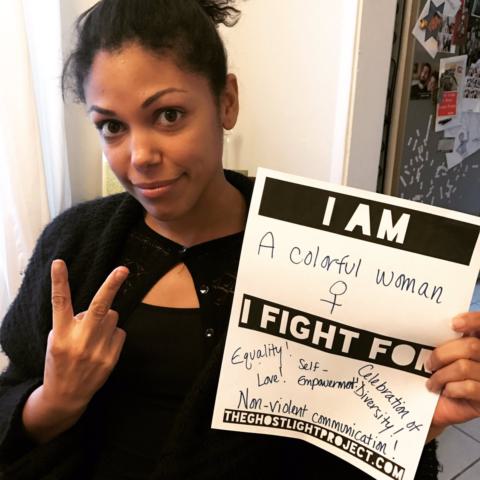 I AM
A colorful woman
♀
I FIGHT FOR
Equality!
Love!
Self-
Empowerment!
Celebration of
Diversity!
Non-violent communication!
THEGHOSTLIGHTPROJECT.COM